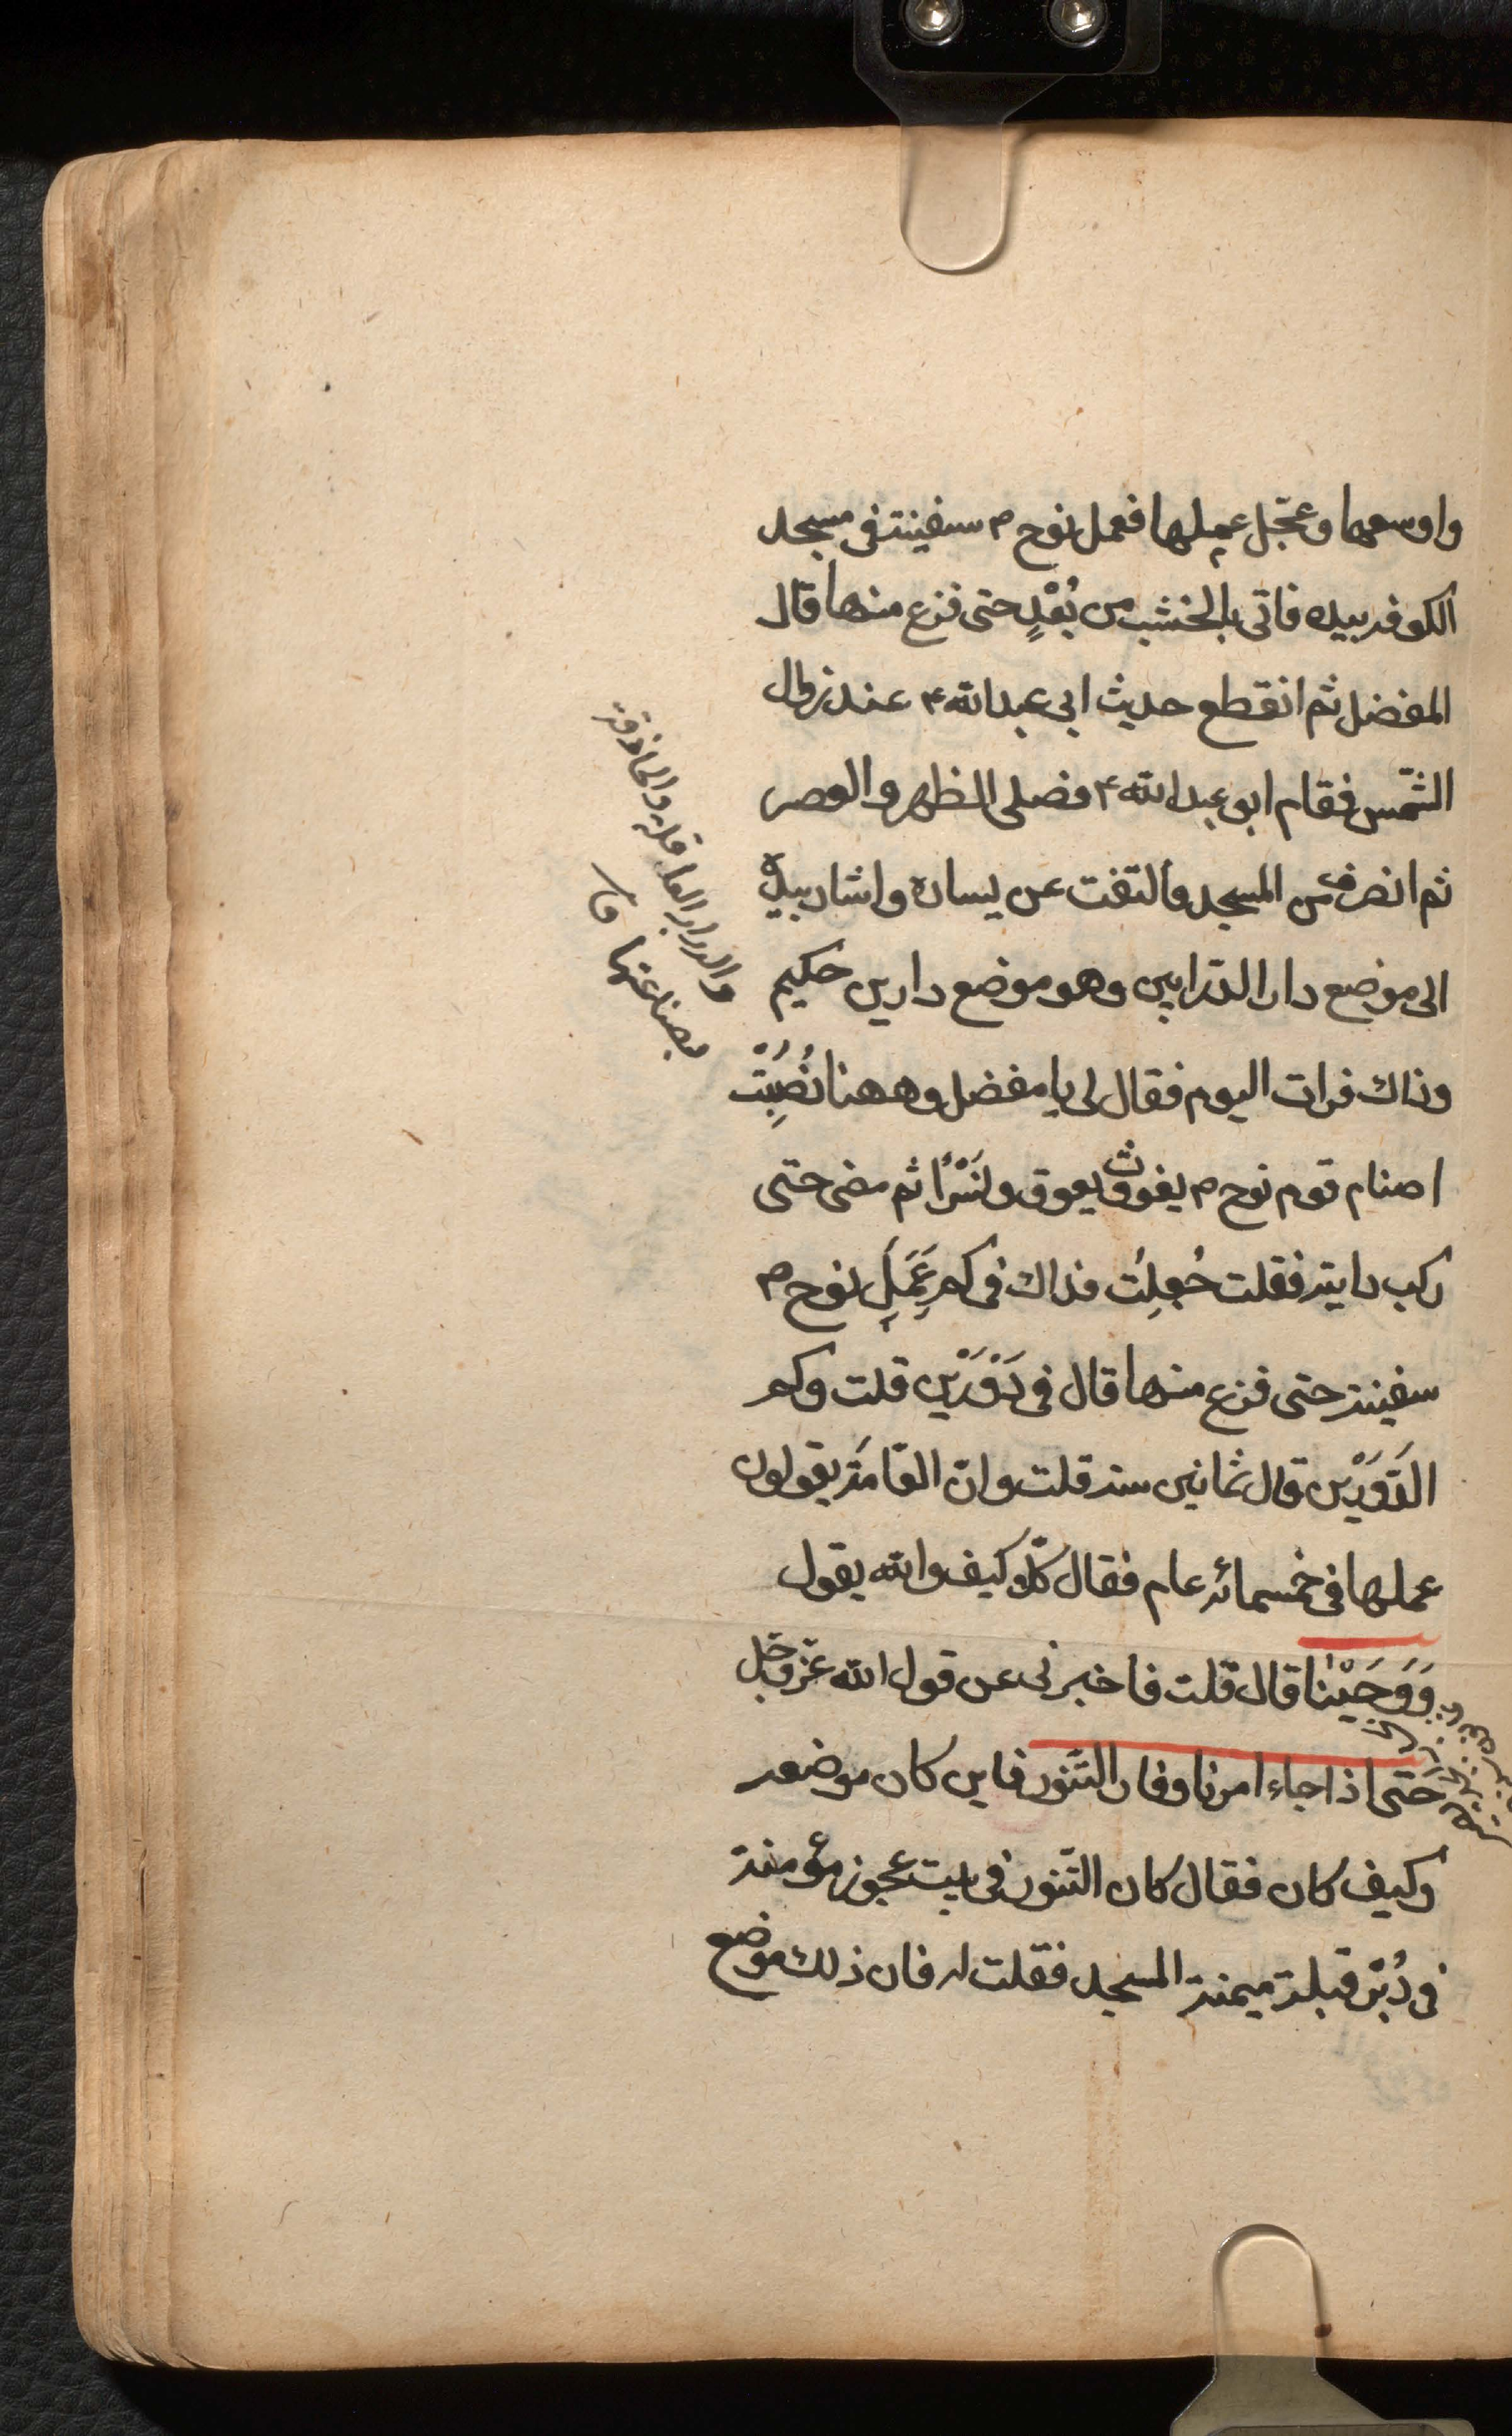 واوسعها وعجّل عملها فعمل نوح م سفينته فى مسجد
الكوفه بيده فاتى بالخشب من بُعْدٍ حتى فرغ منها قال
المفضل ثم انقطع حديث ابى عبدالله ۴ عند زوال
الشّمس فقام ابو عبدالله ۴ فصلى الظهر والعصر
ثم انصرف من المسجد والتفت عن يساره واشار بيده
الى موضع دار الدّرابين وهو موضع دار بن حكيم
وذاك فرات اليوم فقال لى يا مفضل وههنا نُصِبَتْ
اصنام قوم نوح م يغوث ويعوق ونَسْرًا ثم مضى حتى
ركب دابته فقلت جُعِلتُ فداك فى كم عَمِلَ نوح م
سفينته حتى فرغ منها قال فى دَوْرَيْن قلت وكم
الدَّوْرَيْن قال ثمانين سنه قلت وانّ العّامَة يقولون
عملها فى خمسمائه عام فقال كلّا كيف والله يقول
وَوَحَيْنا قال قلت فاخبرنى عن قول الله عزّ وجّل
حتى اذا جاء امرنا وفار التنّور فاين كان موضعه
وكيف كان فقال كان التنّور فى بيت عجوز مؤمنة
فى دُبُر قبلة ميمنة المسجد فقلت له فان ذلك موضع
والحاذقة
بصناعتها